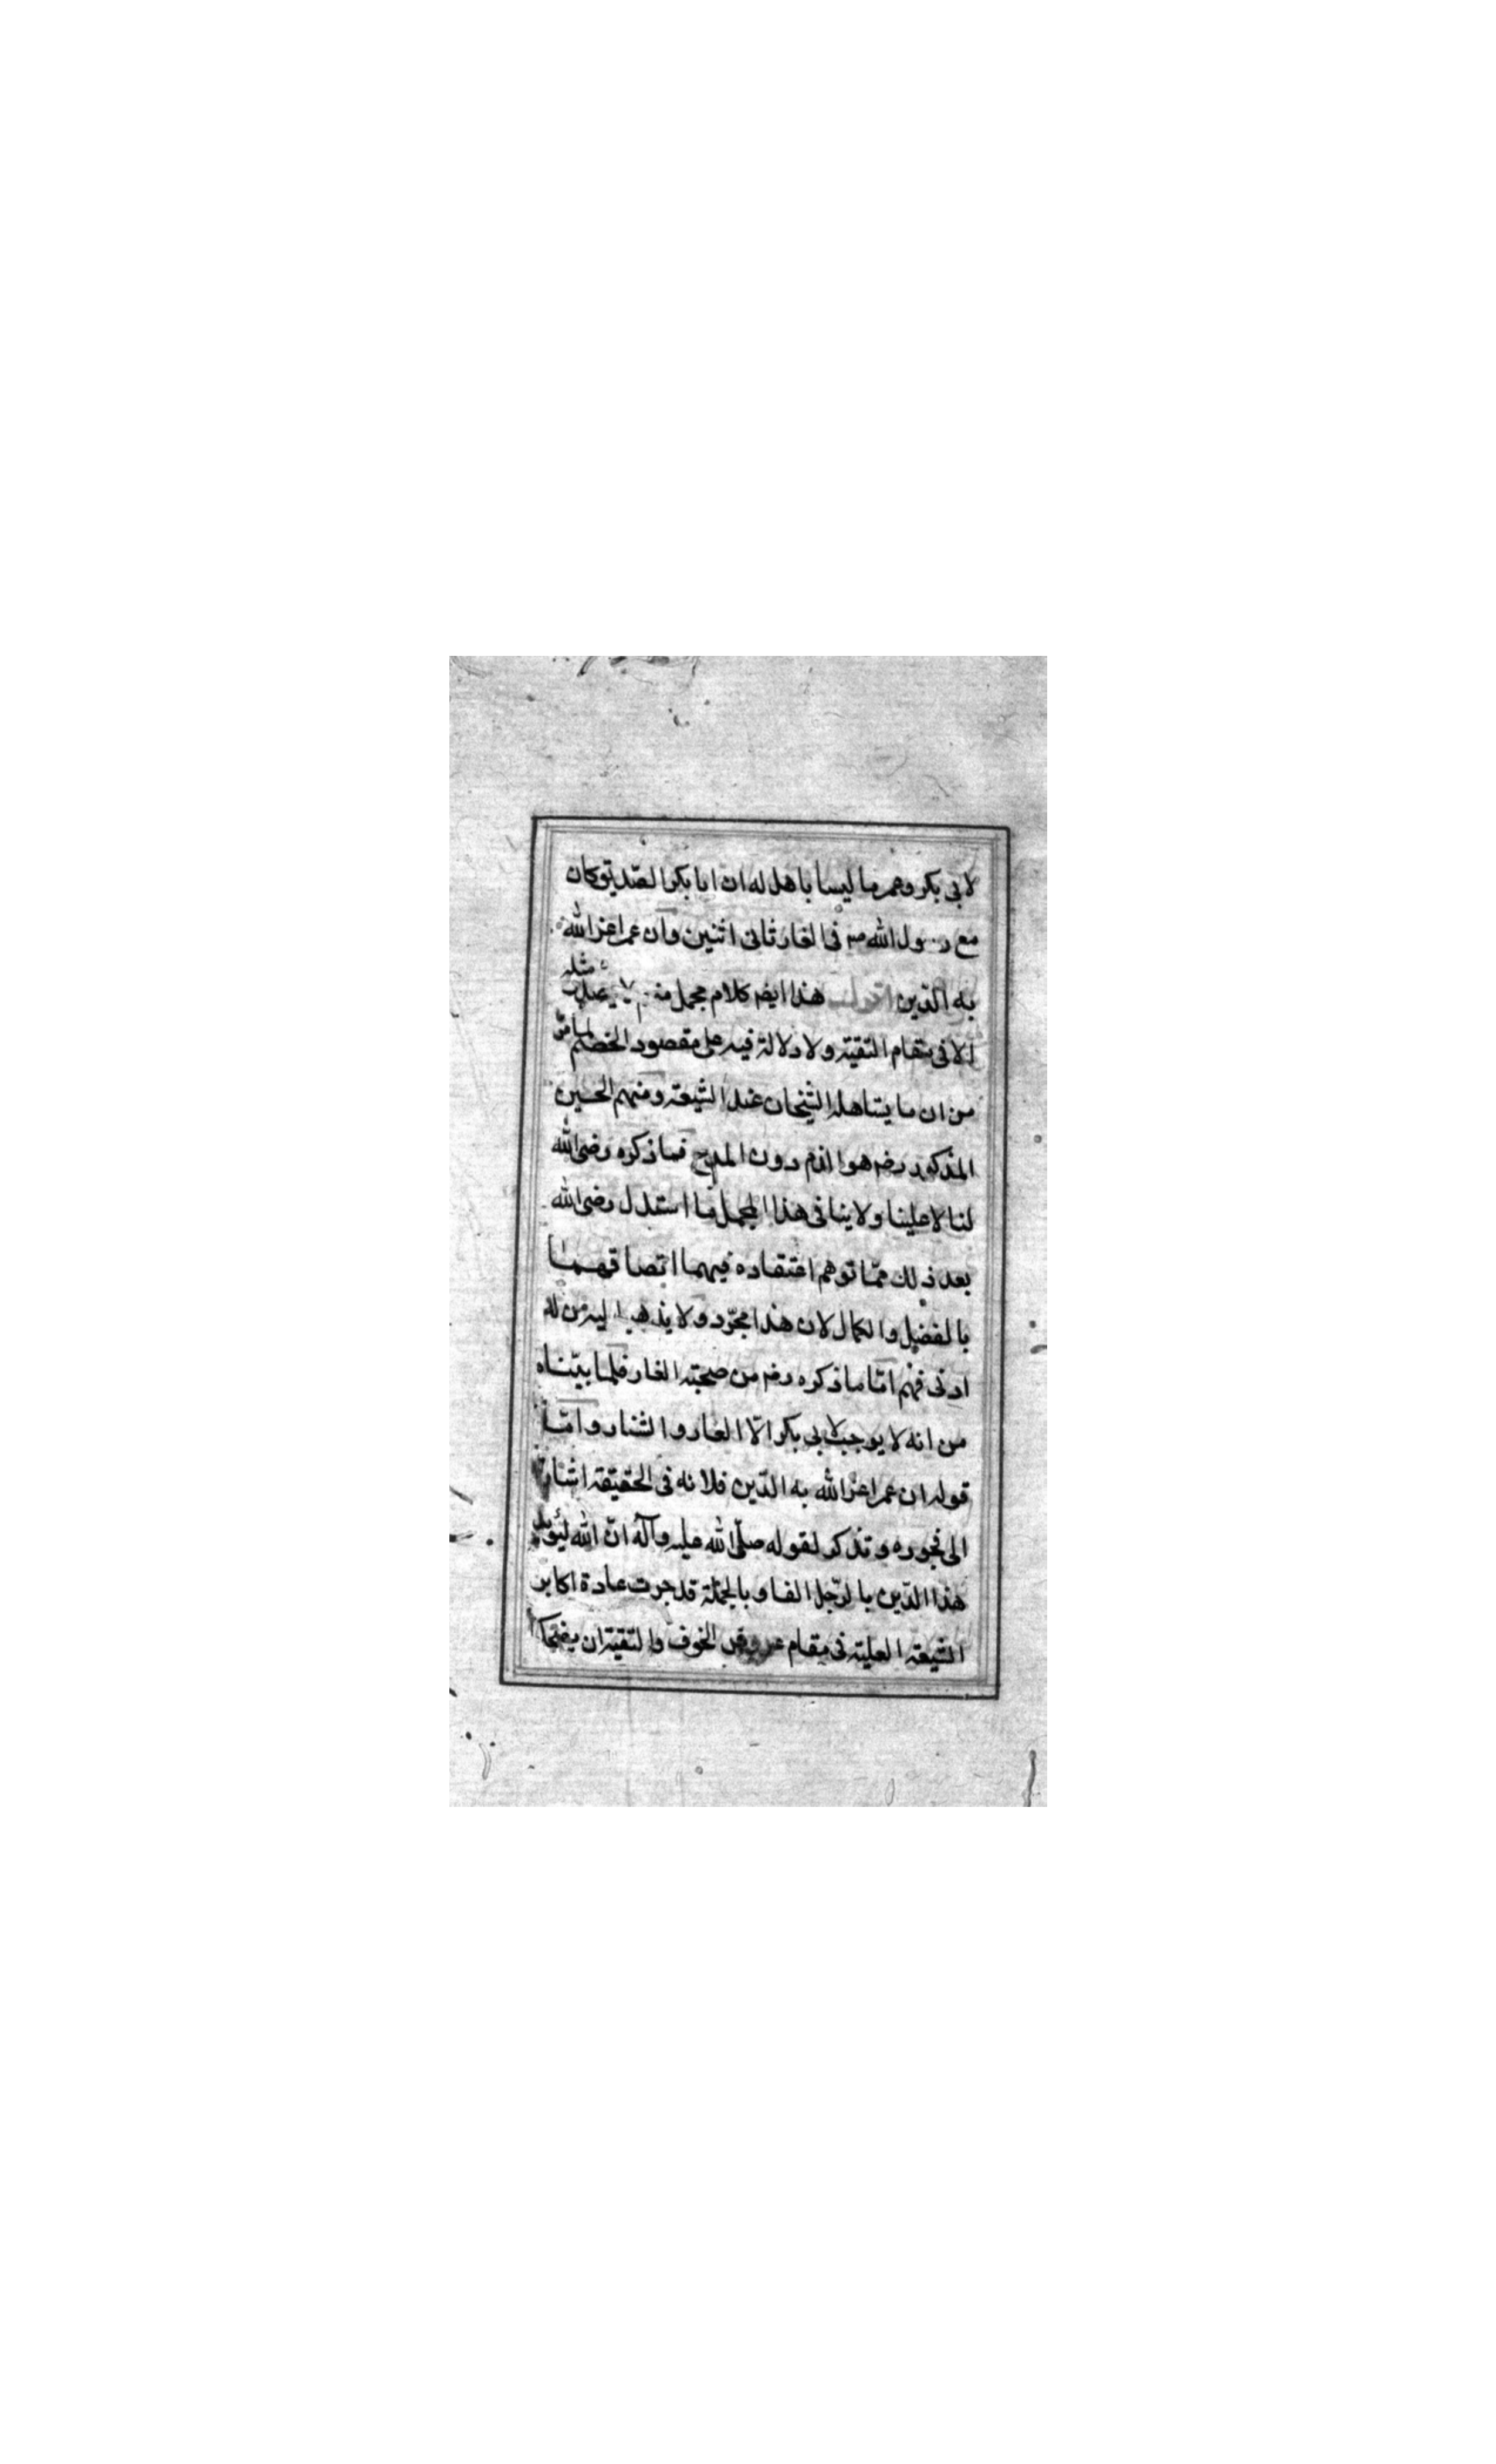 لابى بكر وعمر ما ليسا باهل له ان ابا بكر الصّديق كان
مع رسول الله ص فى الغار ثانى اثنين وان عمر اعز الله
به الدّين اقول هذا ايضا كلام مجمل منه لا مثله
الا فى مقام التقيّة ولا دلالة فيه على مقصود الخصم لما مرّ
من ان ما يتاهله الشيخان عند الشيعة ومنهم الحسين
المذكور رض هو الذم دون المدح فما ذكره رضى الله
لنا لا علينا ولا ينافى هذا المجمل ما استدل رضى الله
بعد ذلك ممّا توهم اعتقاده فيهما اتصافهما
بالفضل والكمال لان هذا مجرّد ولا يذهب اليه من له
ادنى فهم امّا ما ذكره رض من صحبته الغار فلما بيّنّاه
من انه لا يوجب لابى بكر الاّ العار والشنار وامّا
قوله ان عمر اعز الله به الدّين فلانه فى الحقيقة اشارة
الى فجوره و تذكر لقوله صلّى الله عليه وآله انّ الله ليؤيد
هذا الدّين بالرّجل الفا وبالجملة قد جرت عادة اكابر
الشيعة العليّة فى مقام عروض الخوف والتقية ان